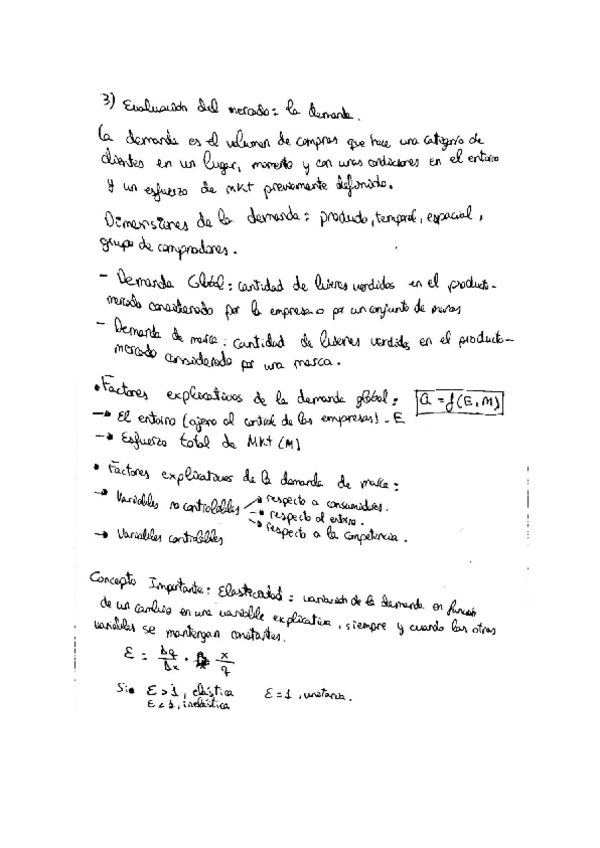 3) Evaluación del mercado: la demanda.
La demanda es el volumen de compras que hace una categoría de
clientes en un lugar, momento y con unas condiciones en el entorno
y un esfuerzo de MKt previamente definido.
Dimensiones de la demanda: producto, temporal, espacial,
grupo de compradores.
- Demanda Global: cantidad de bienes vendidos en el producto-
mercado considerado por la empresa o por un conjunto de
- Demanda de marca: cantidad de bienes vendidos en el producto-
mercado considerado por una marca.
• Factores explicativos de la demanda global: Q = f(E, M)
→ El entorno (ajeno al control de las empresas). E
→ Esfuerzo total de MKt (M)
• Factores explicativos de la demanda de marca:
→ Variables no controlables → respecto a consumidores.
→ respecto al entorno.
→ respecto a la competencia.
→ Variables controlables
Concepto Importante: Elasticidad: variación de la demanda en función
de un cambio en una variable explicativa, siempre y cuando las otras
variables se mantengan constantes.
Ɛ = Δq/Δx · x/q
Si Ɛ > 1, elástica Ɛ = 1, unitaria.
Ɛ < 1, inelástica